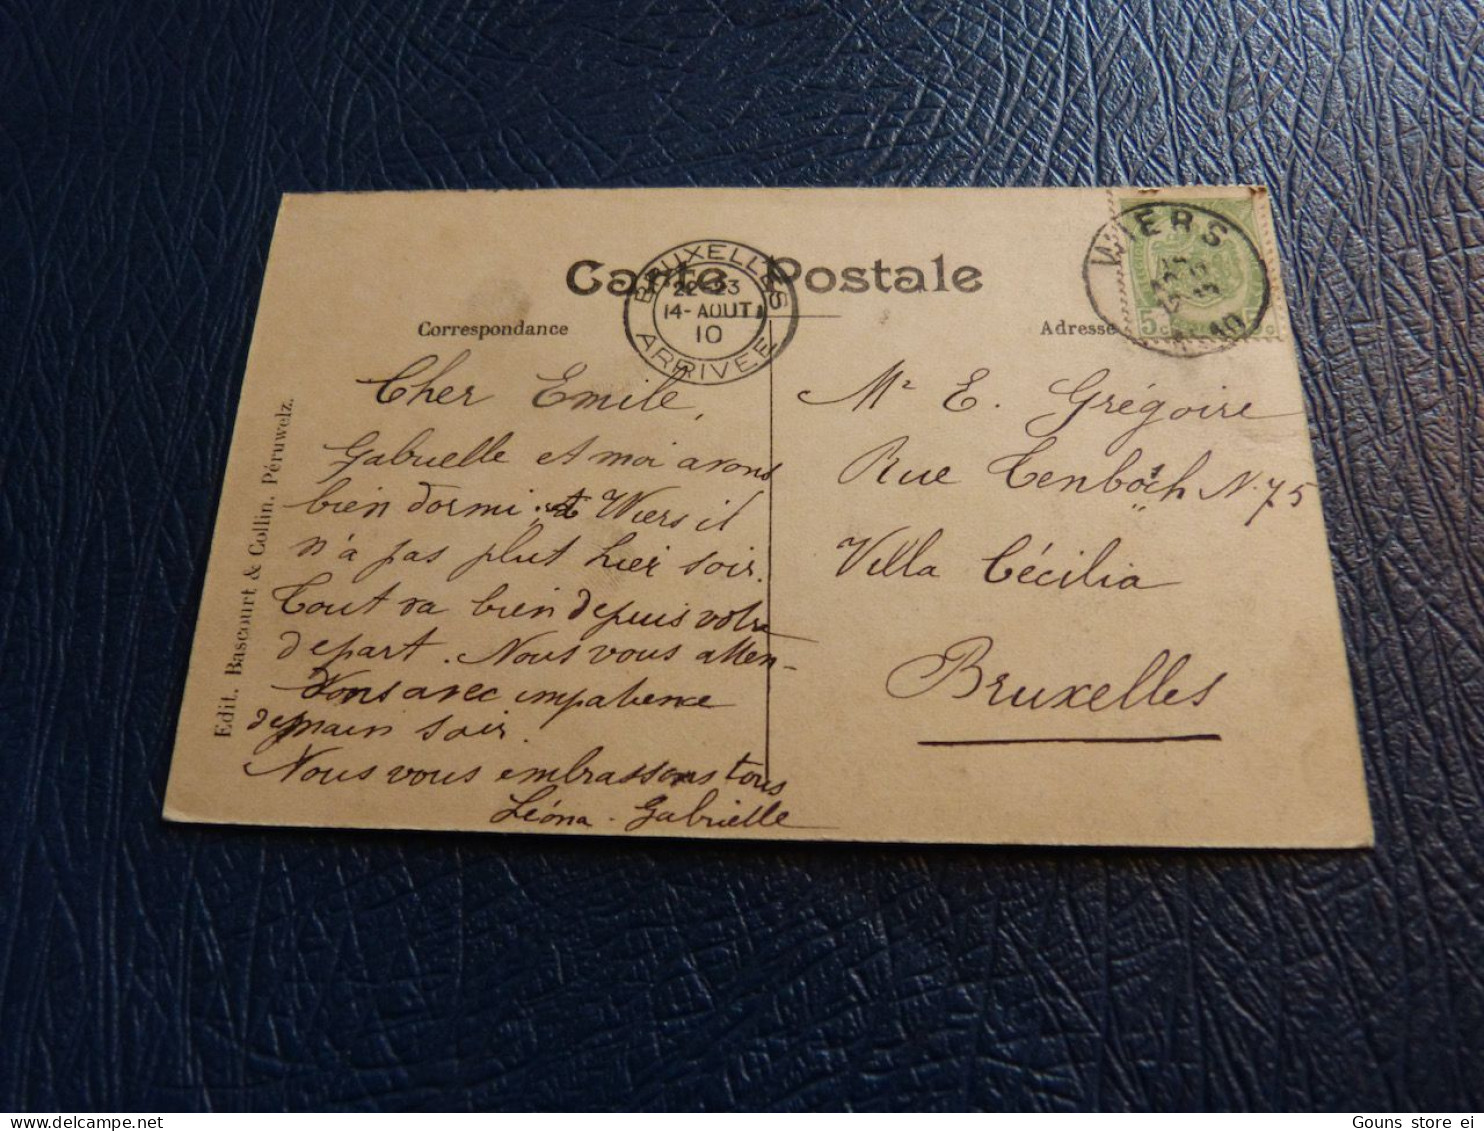 Carte Postale
Correspondance
Adresse
BRUXELLES
22-23
14-AOUT
10
ARRIVEE
WIERS
10
5c
Cher Emile,
Gabrielle et moi avons
bien dormi. Wiers il
n'a pas plut hier soir.
Tout va bien depuis votre
depart. Nous vous atten-
dons avec impatience
demain soir.
Nous vous embrassons tous
Léona. Gabrielle
Mr E. Grégoire
Rue Tenbosch N. 75
Villa Cécilia
Bruxelles
Edit. Bascourt & Collin. Péruwelz.
Gouns store ei